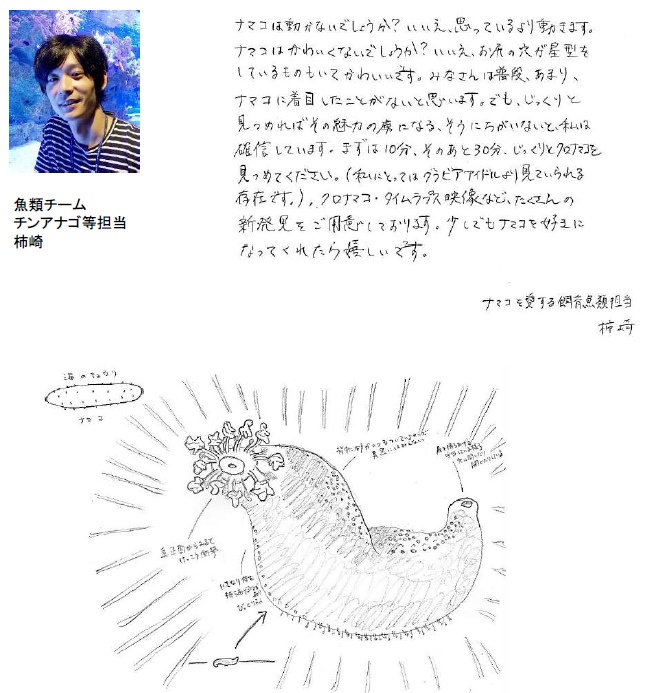 魚類チーム
チンアナゴ等担当
柿崎
ナマコは動かないでしょうか?いいえ、思っているより動きます。
ナマコはかわいくないでしょうか?いいえ、お尻の穴が星型を
しているものもいてかわいいです。みなさんは普段、あまり、
ナマコに着目したことがないと思います。でも、じっくりと
見つめればその魅力の虜になる、そうにちがいないと、私は
確信しています。まずは10分、そのあと30分、じっくりとクロナマコを
見つめてください。(私にとってはグラビアアイドルより見ていられる
存在です。)。クロナマコ・タイムラプス映像など、たくさんの
新発見をご用意しております。少しでもナマコを好きに
なってくれたら嬉しいです。
ナマコを愛する飼育魚類担当
柿崎
海のきゅうり
ナマコ
真正面からみると
けっこう衝撃